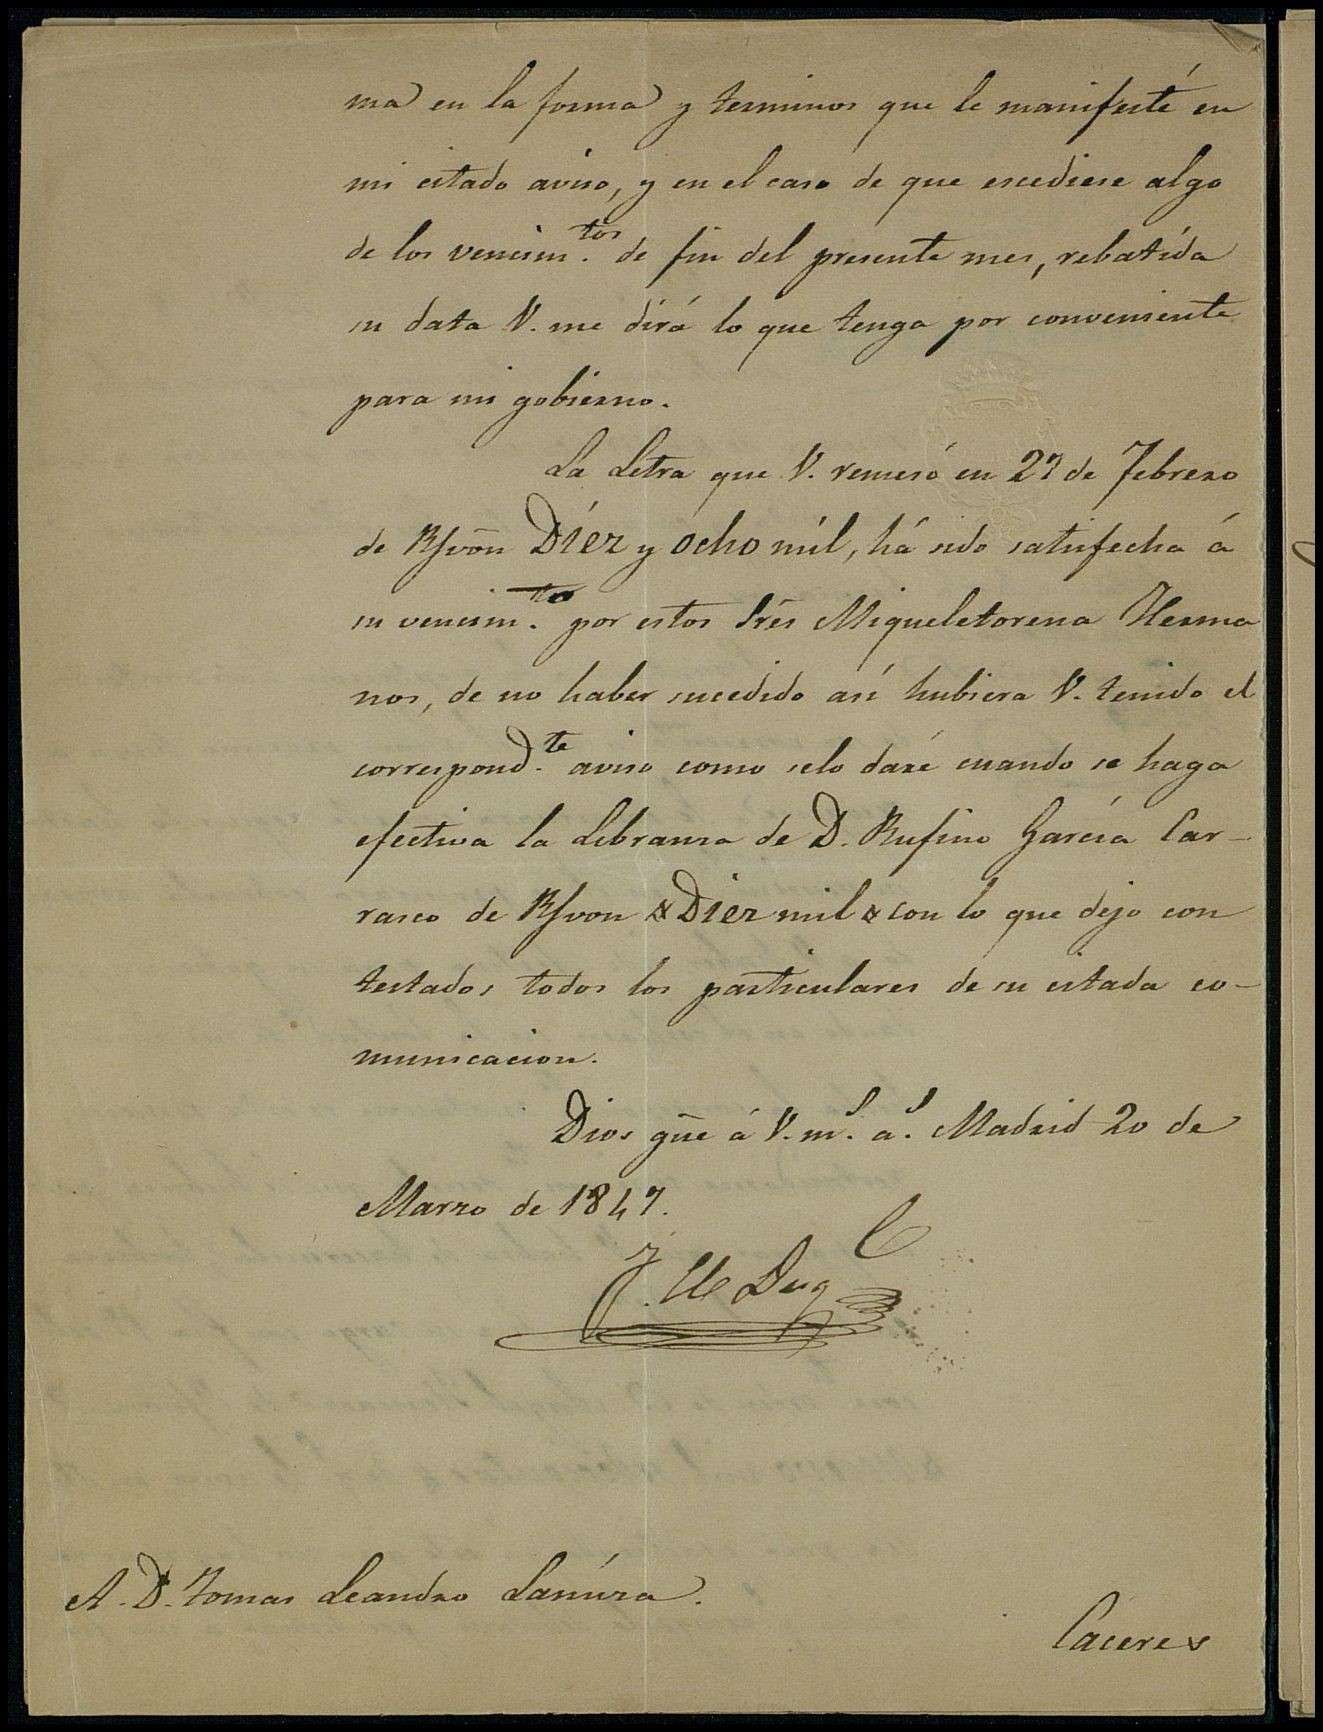 ma en la forma y terminos que le manifesté en
mi citado aviso, y en el caso de que escediese algo
de los vencim.tos de fin del presente mes, rebatida
su data V. me dirá lo que tenga por conveniente
para mi gobierno.
La Letra que V. remesó en 27 de Febrero
de Rsvōn Diez y ocho mil, há sido satisfecha á
su vencim.to por estos Srēs Migueletorena Herma
nos, de no haber sucedido asi hubiera V. tenido el
correspond.te aviso como selo daré cuando se haga
efectiva la Libranza de D. Rufino García Car-
rasco de Rsvon Diez mil con lo que dejo con
testados todos los particulares de su citada co-
municacion.
Dios gūe á V. m.s a.s Madrid 20 de
Marzo de 1847.
A. D. Tomas Leandro Lanúza.
Caceres